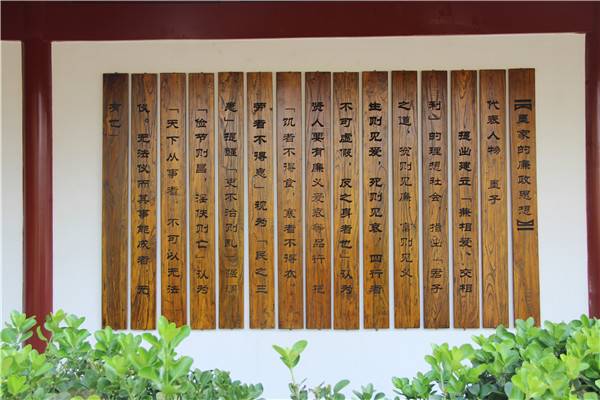 【墨家的廉政思想】
代表人物 墨子
提出建立「兼相爱、交相
利」的理想社会 指出「君子
之道，贫则见廉 富则见义
生则见爱，死则见哀，四行者
不可虚假 反之身者也」认为
贤人要有廉义爱哀等品行 把
「饥者不得食 寒者不得衣
劳者不得息」视为「民之三
患」提醒「吏不治则乱」强调
「俭节则昌，淫佚则亡」认为
「天下从事者 不可以无法
仪。无法仪而其事能成者 无
有也」